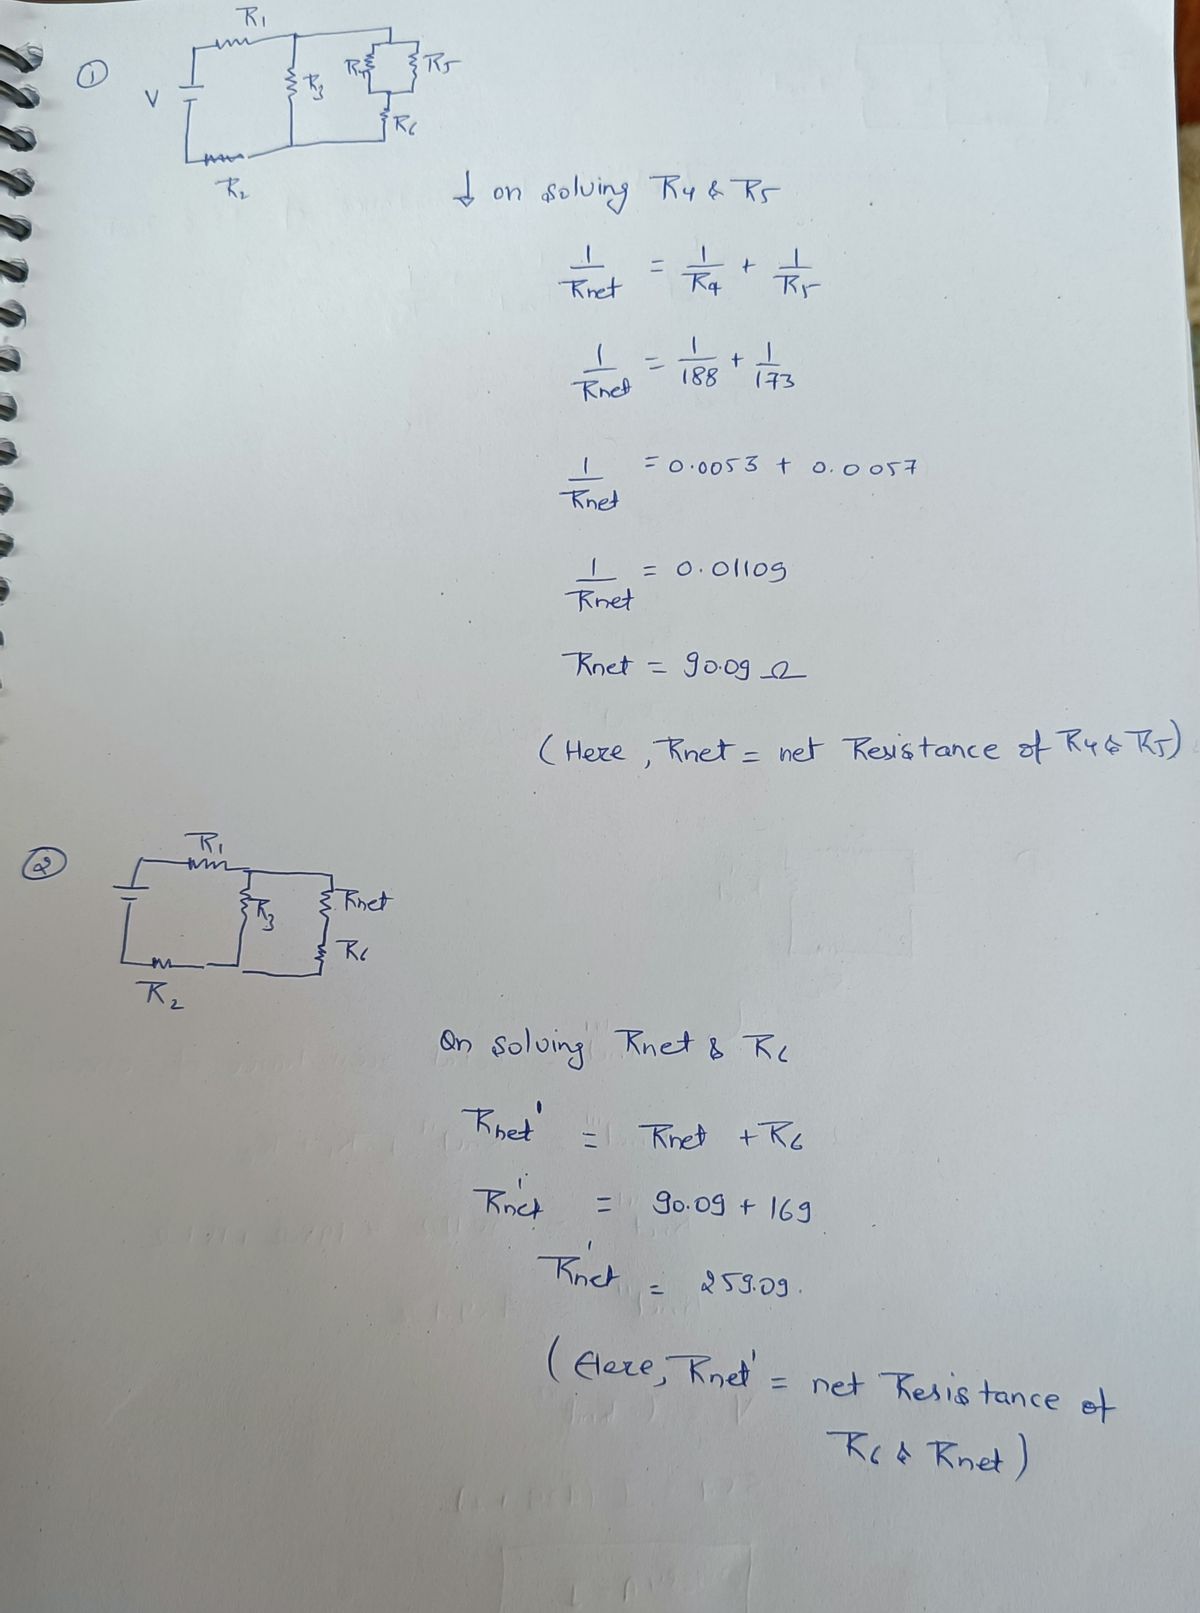 ①
R1
V
R3
R4
R5
R6
R2
↓ on solving R4 & R5
1/Rnet = 1/R4 + 1/R5
1/Rnet = 1/188 + 1/173
1/Rnet = 0.0053 + 0.0057
1/Rnet = 0.01109
Rnet = 90.09 Ω
(Here, Rnet = net Resistance of R4 & R5)
②
R1
R3
Rnet
R6
R2
On solving Rnet & R6
Rnet' = Rnet + R6
Rnet' = 90.09 + 169
Rnet' = 259.09.
(Here, Rnet' = net Resistance of
R6 & Rnet)